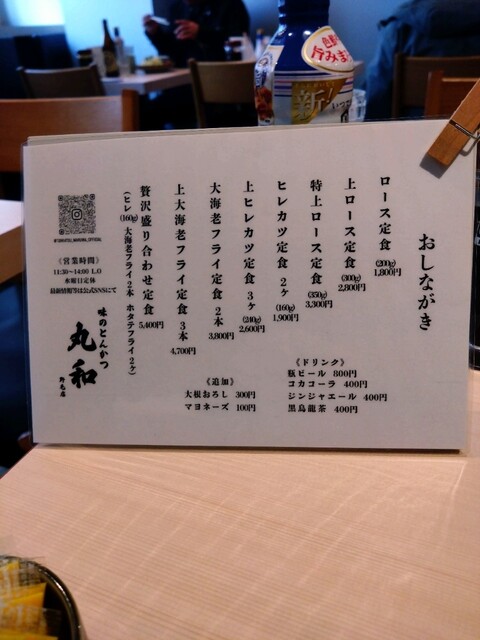 おしながき
ロース定食 (200g) 1,800円
上ロース定食 (300g) 2,800円
特上ロース定食 (350g) 3,300円
ヒレカツ定食 2ヶ (160g) 1,900円
上ヒレカツ定食 3ヶ (240g) 2,600円
大海老フライ定食 2本 3,800円
上大海老フライ定食 3本 4,700円
贅沢盛り合わせ定食 5,400円
(ヒレ(160g) 大海老フライ2本 ホタテフライ2ヶ)
《ドリンク》
瓶ビール 800円
コカコーラ 400円
ジンジャエール 400円
黒烏龍茶 400円
《追加》
大根おろし 300円
マヨネーズ 100円
《営業時間》
11:30~14:00 L.O
水曜日定休
最新情報等は公式SNSにて
味のとんかつ
丸和
新!
旨みま